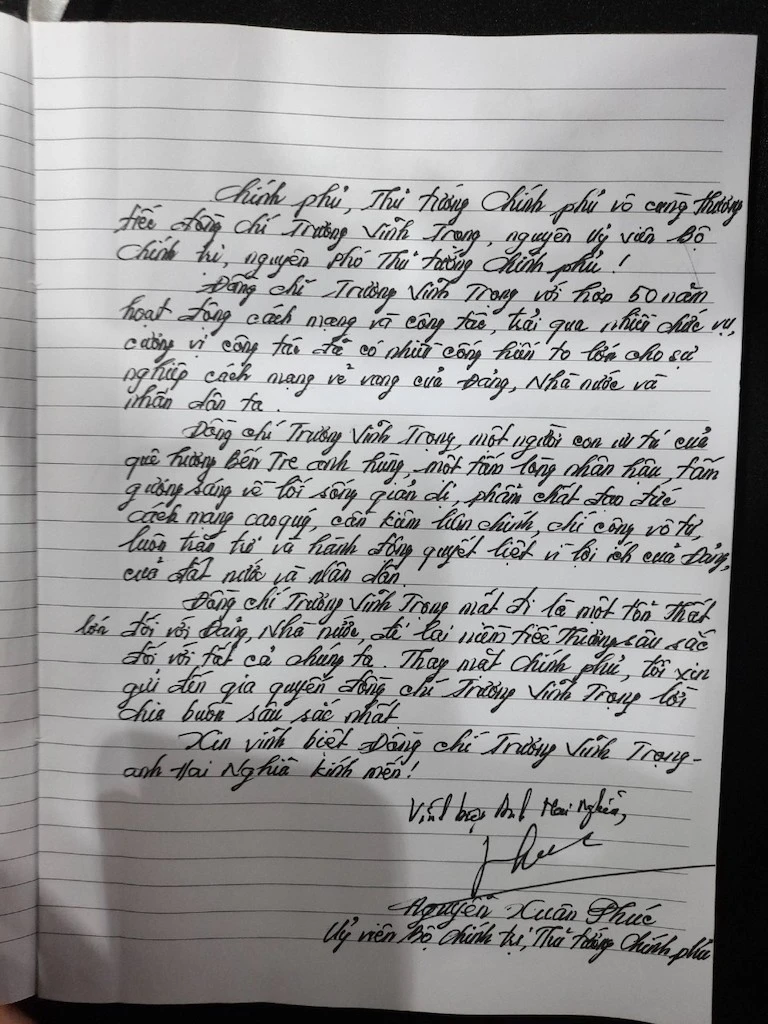 Chính phủ, Thủ tướng Chính phủ vô cùng thương
tiếc đồng chí Trương Vĩnh Trọng, nguyên Uỷ viên Bộ
Chính trị, nguyên Phó Thủ tướng Chính phủ!
Đồng chí Trương Vĩnh Trọng với hơn 50 năm
hoạt động cách mạng và công tác, trải qua nhiều chức vụ,
cương vị công tác đã có nhiều cống hiến to lớn cho sự
nghiệp cách mạng vẻ vang của Đảng, Nhà nước và
nhân dân ta.
Đồng chí Trương Vĩnh Trọng, một người con ưu tú của
quê hương Bến Tre anh hùng, một tấm lòng nhân hậu, tấm
gương sáng về lối sống giản dị, phẩm chất đạo đức
cách mạng cao quý, cần kiệm liêm chính, chí công vô tư,
luôn trăn trở và hành động quyết liệt vì lợi ích của Đảng,
của đất nước và nhân dân.
Đồng chí Trương Vĩnh Trọng mất đi là một tổn thất
lớn đối với Đảng, Nhà nước, để lại niềm tiếc thương sâu sắc
đối với tất cả chúng ta. Thay mặt Chính phủ, tôi xin
gửi đến gia quyến đồng chí Trương Vĩnh Trọng lời
chia buồn sâu sắc nhất.
Xin vĩnh biệt Đồng chí Trương Vĩnh Trọng -
anh Hai Nghĩa kính mến!
Vĩnh biệt Anh Hai Nghĩa,
Nguyễn Xuân Phúc
Uỷ viên Bộ Chính trị, Thủ tướng Chính phủ